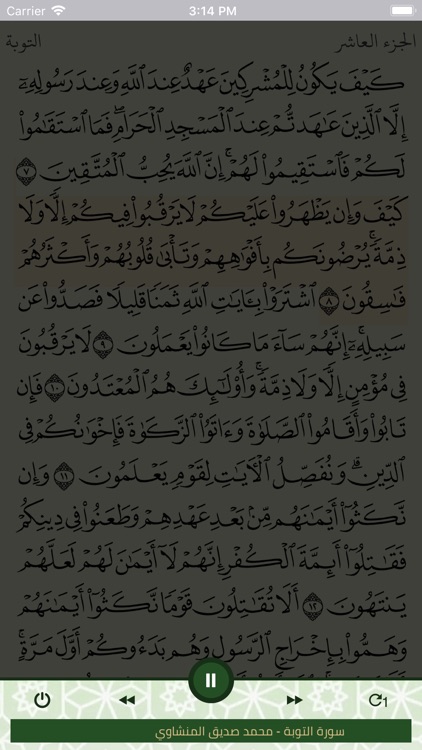 Carrier 3:14 PM
الجزء العاشر التوبة
كَيْفَ يَكُونُ لِلْمُشْرِكِينَ عَهْدٌ عِندَ ٱللَّهِ وَعِندَ رَسُولِهِۦٓ
إِلَّا ٱلَّذِينَ عَٰهَدتُّمْ عِندَ ٱلْمَسْجِدِ ٱلْحَرَامِۖ فَمَا ٱسْتَقَٰمُوا۟
لَكُمْ فَٱسْتَقِيمُوا۟ لَهُمْۚ إِنَّ ٱللَّهَ يُحِبُّ ٱلْمُتَّقِينَ ٧
كَيْفَ وَإِن يَظْهَرُوا۟ عَلَيْكُمْ لَا يَرْقُبُوا۟ فِيكُمْ إِلًّا وَلَا
ذِمَّةًۚ يُرْضُونَكُم بِأَفْوَٰهِهِمْ وَتَأْبَىٰ قُلُوبُهُمْ وَأَكْثَرُهُمْ
فَٰسِقُونَ ٨ ٱشْتَرَوْا۟ بِـَٔايَٰتِ ٱللَّهِ ثَمَنًا قَلِيلًا فَصَدُّوا۟ عَن
سَبِيلِهِۦٓۚ إِنَّهُمْ سَآءَ مَا كَانُوا۟ يَعْمَلُونَ ٩ لَا يَرْقُبُونَ
فِى مُؤْمِنٍ إِلًّا وَلَا ذِمَّةًۚ وَأُو۟لَٰٓئِكَ هُمُ ٱلْمُعْتَدُونَ ١٠ فَإِن
تَابُوا۟ وَأَقَامُوا۟ ٱلصَّلَوٰةَ وَءَاتَوُا۟ ٱلزَّكَوٰةَ فَإِخْوَٰنُكُمْ فِى
ٱلدِّينِۗ وَنُفَصِّلُ ٱلْـَٔايَٰتِ لِقَوْمٍ يَعْلَمُونَ ١١ وَإِن
نَّكَثُوٓا۟ أَيْمَٰنَهُم مِّنۢ بَعْدِ عَهْدِهِمْ وَطَعَنُوا۟ فِى دِينِكُمْ
فَقَٰتِلُوٓا۟ أَئِمَّةَ ٱلْكُفْرِۙ إِنَّهُمْ لَآ أَيْمَٰنَ لَهُمْ لَعَلَّهُمْ
يَنتَهُونَ ١٢ أَلَا تُقَٰتِلُونَ قَوْمًا نَّكَثُوٓا۟ أَيْمَٰنَهُمْ
وَهَمُّوا۟ بِإِخْرَاجِ ٱلرَّسُولِ وَهُم بَدَءُوكُمْ أَوَّلَ مَرَّةٍۚ
1
سورة التوبة - محمد صديق المنشاوي